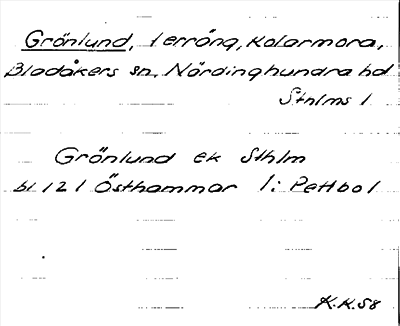 Grönlund, 1 erräng, Kolarmora,
Bladåkers sn, Närdinghundra hd
Sthlms l
Grönlund ek Sthlm
bl 121 Östhammar l: Pettbol
K.K.58